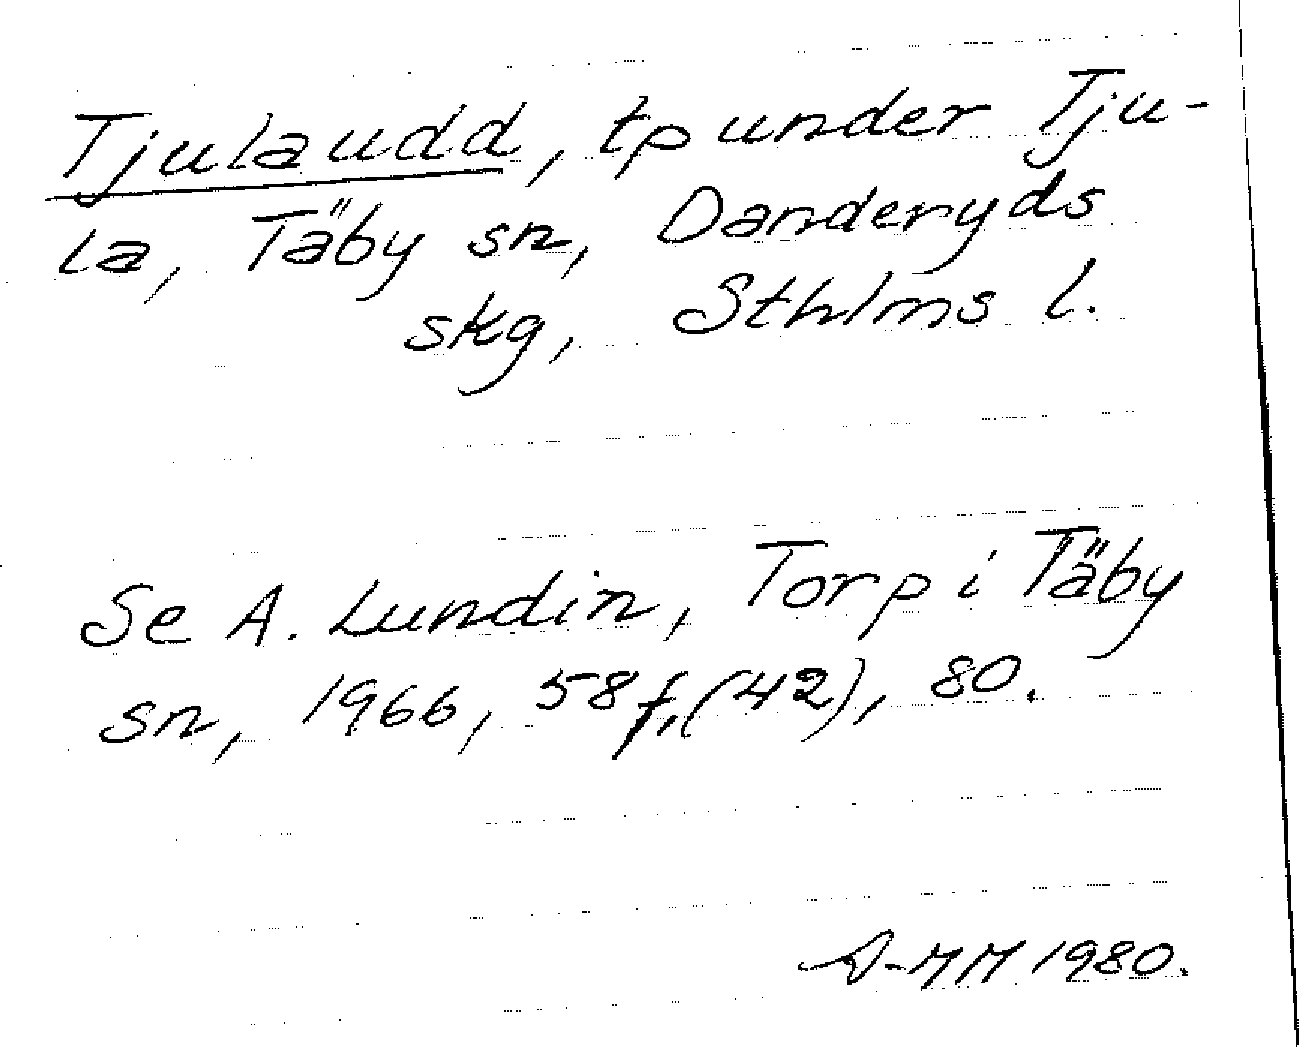 Tjulaudd, tp under Tju-
la, Täby sn, Danderyds
skg, Sthlms l.
Se A. Lundin, Torp i Täby
sn, 1966, 58 f, (42), 80.
A-MM 1980.